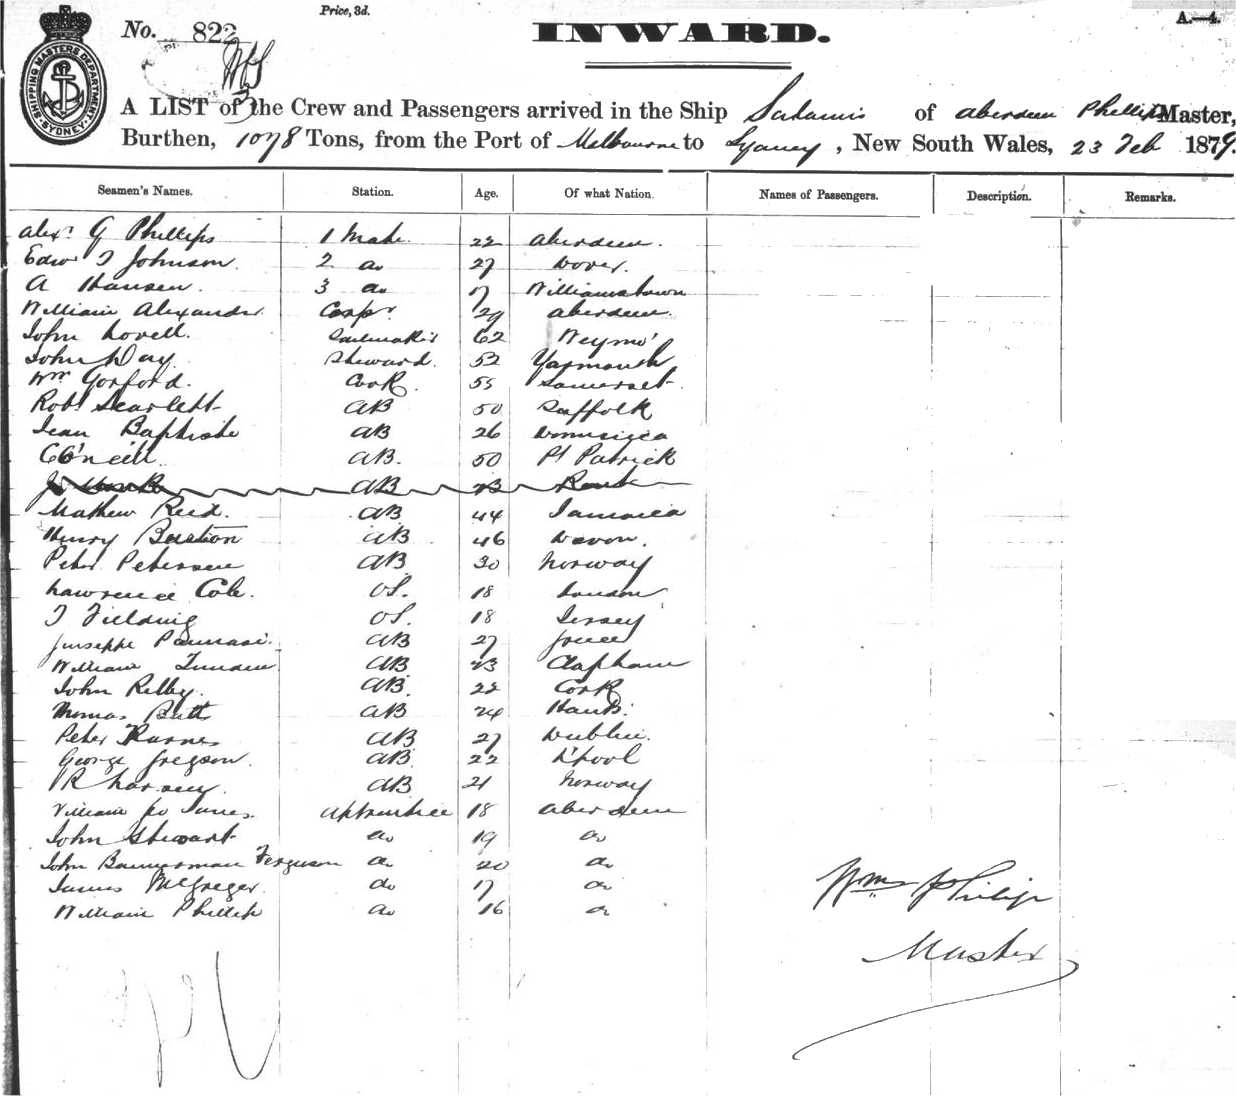 Price, 3d.
A.—4.
No. 822
INWARD.
SHIPPING MASTERS DEPARTMENT SYDNEY
A LIST of the Crew and Passengers arrived in the Ship Salamis of Aberdeen Phillip Master,
Burthen, 1078 Tons, from the Port of Melbourne to Sydney, New South Wales, 23 Feb 1879.
Seamen's Names. Station. Age. Of what Nation. Names of Passengers. Description. Remarks.
Alexr G Phillips 1 Mate 22 Aberdeen.
Edw T Johnson. 2 do 27 Dover.
A Hansen. 3 do 17 Williamstown
William Alexander Carpr 29 Aberdeen.
John Lovell. Sailmaker 62 Weymo'
John Day Steward. 52 Yarmouth
Wm Gosford. Cook 55 Somerset.
Robt Scarlett AB 50 Suffolk
Jean Baptiste AB 26
C O'neill AB. 50 Pt Patrick
AB 23
Mathew Reed. AB 44 Jamaica
Henry AB 46 Devon.
Peter Petersen AB 30 Norway
Lawrence Cole. OS. 18 London
T Fielding OS. 18 Jersey
Juiseppe AB 27 Greece
William AB 23 Clapham
John Kelly. AB. 22 Cork
Thomas Butt AB 24 Hants.
Peter Karnes AB 27 Dublin.
George Gregson. AB. 22 L'pool
R AB 21 Norway
William Apprentice 18 Aberdeen
John Stewart do 19 do
John Bannerman Ferguson do 20 do
James McGreger. do 17 do
William Phillip do 16 do
Wm Philip
Master